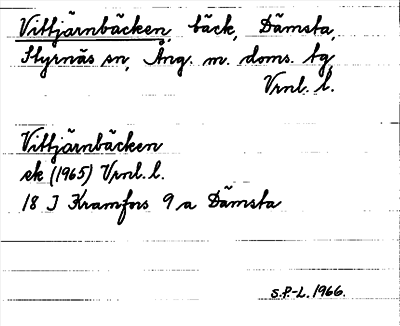 Vittjärnbäcken, bäck, Dämsta,
Styrnäs sn, Ång. m. doms. tg,
Vrnl. l.
Vittjärnbäcken
ek (1965) Vrnl. l.
18 J Kramfors 9 a Dämsta
S.P.-L. 1966.